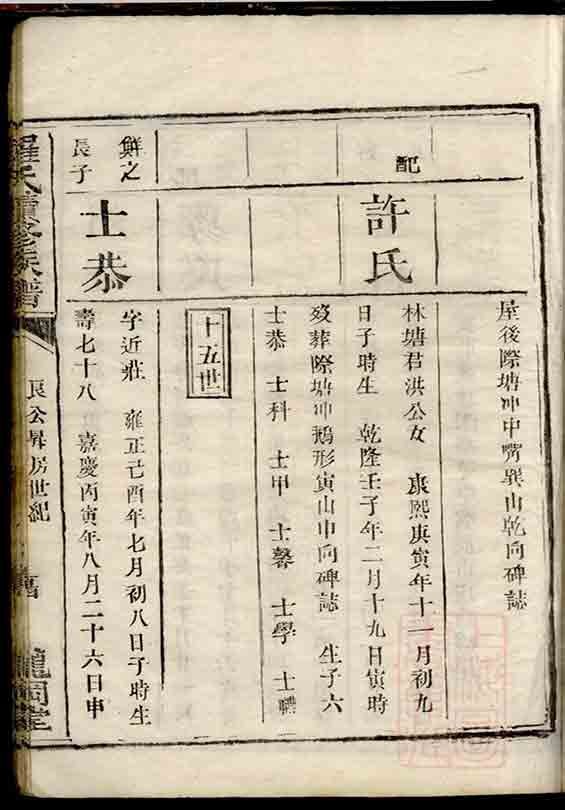 屋後際塘冲中嘴巽山乾向碑誌
配
許氏
林塘君洪公女 康熙庚寅年十一月初九
日子時生 乾隆壬子年二月十九日寅時
歿葬際塘冲鵝形寅山申向碑誌 生子六
士恭 士科 士甲 士馨 士學 士禮
十五世
鮮之
長子
士恭
字近莊 雍正己酉年七月初八日子時生
壽七十八 嘉慶丙寅年八月二十六日申
羅氏續修族譜
公昇房世紀